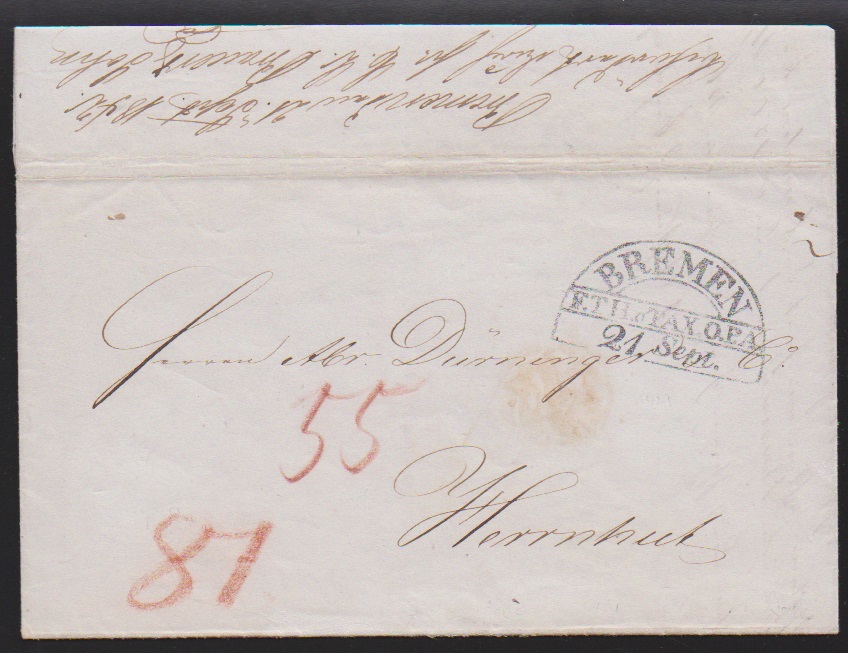 Bremen den 21. Sept. 1842.
BREMEN
F. TH. u TAX. O.P.A.
21 Sept.
Herren Abr. Dürninger & Co.
55
Herrnhut
87